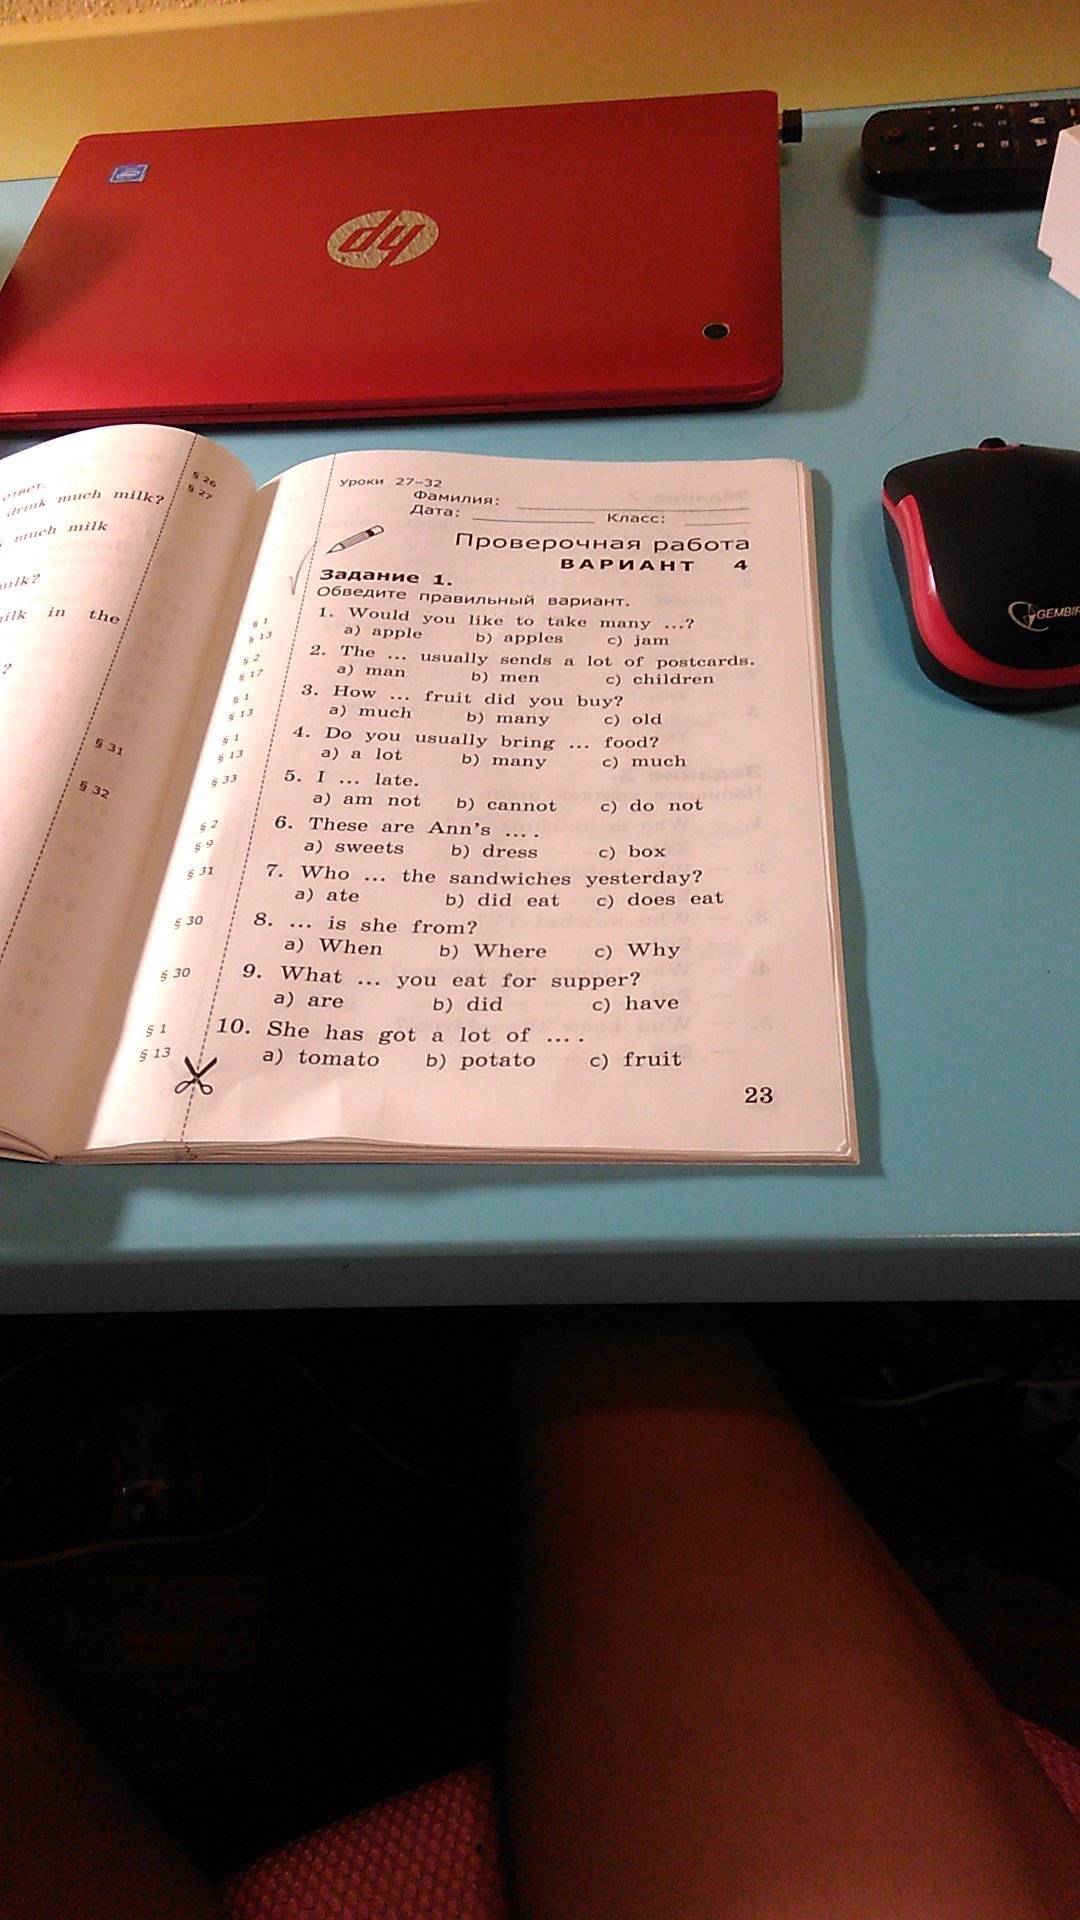 hp
GEMBIR
ответ.
drink much milk?
much milk
milk?
milk in the
?
§ 26
§ 27
§ 31
§ 32
Уроки 27–32
Фамилия:
Дата: Класс:
Проверочная работа
ВАРИАНТ 4
Задание 1.
Обведите правильный вариант.
§ 1 1. Would you like to take many ...?
§ 13 a) apple b) apples c) jam
§ 2 2. The ... usually sends a lot of postcards.
§ 17 a) man b) men c) children
§ 1 3. How ... fruit did you buy?
§ 13 a) much b) many c) old
§ 1 4. Do you usually bring ... food?
§ 13 a) a lot b) many c) much
§ 33 5. I ... late.
a) am not b) cannot c) do not
§ 2 6. These are Ann's ... .
§ 9 a) sweets b) dress c) box
§ 31 7. Who ... the sandwiches yesterday?
a) ate b) did eat c) does eat
§ 30 8. ... is she from?
a) When b) Where c) Why
§ 30 9. What ... you eat for supper?
a) are b) did c) have
§ 1 10. She has got a lot of ... .
§ 13 a) tomato b) potato c) fruit
23